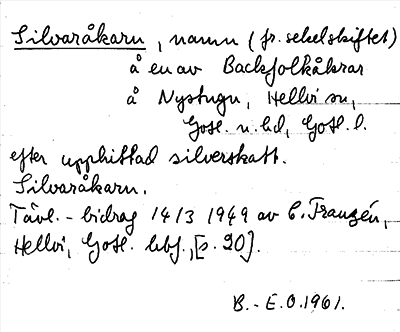 Silvaråkarn, namn (fr. sekelskiftet)
å en av Backfolkåkrar
å Nystugu, Hellvi sn,
Gotl. n. hd, Gotl. l.
efter upphittad silverskatt.
Silvaråkarn.
Tävl.-bidrag 14/3 1949 av C. Franzén,
Hellvi, Gotl. [s. 20].
B.-E.O. 1961.